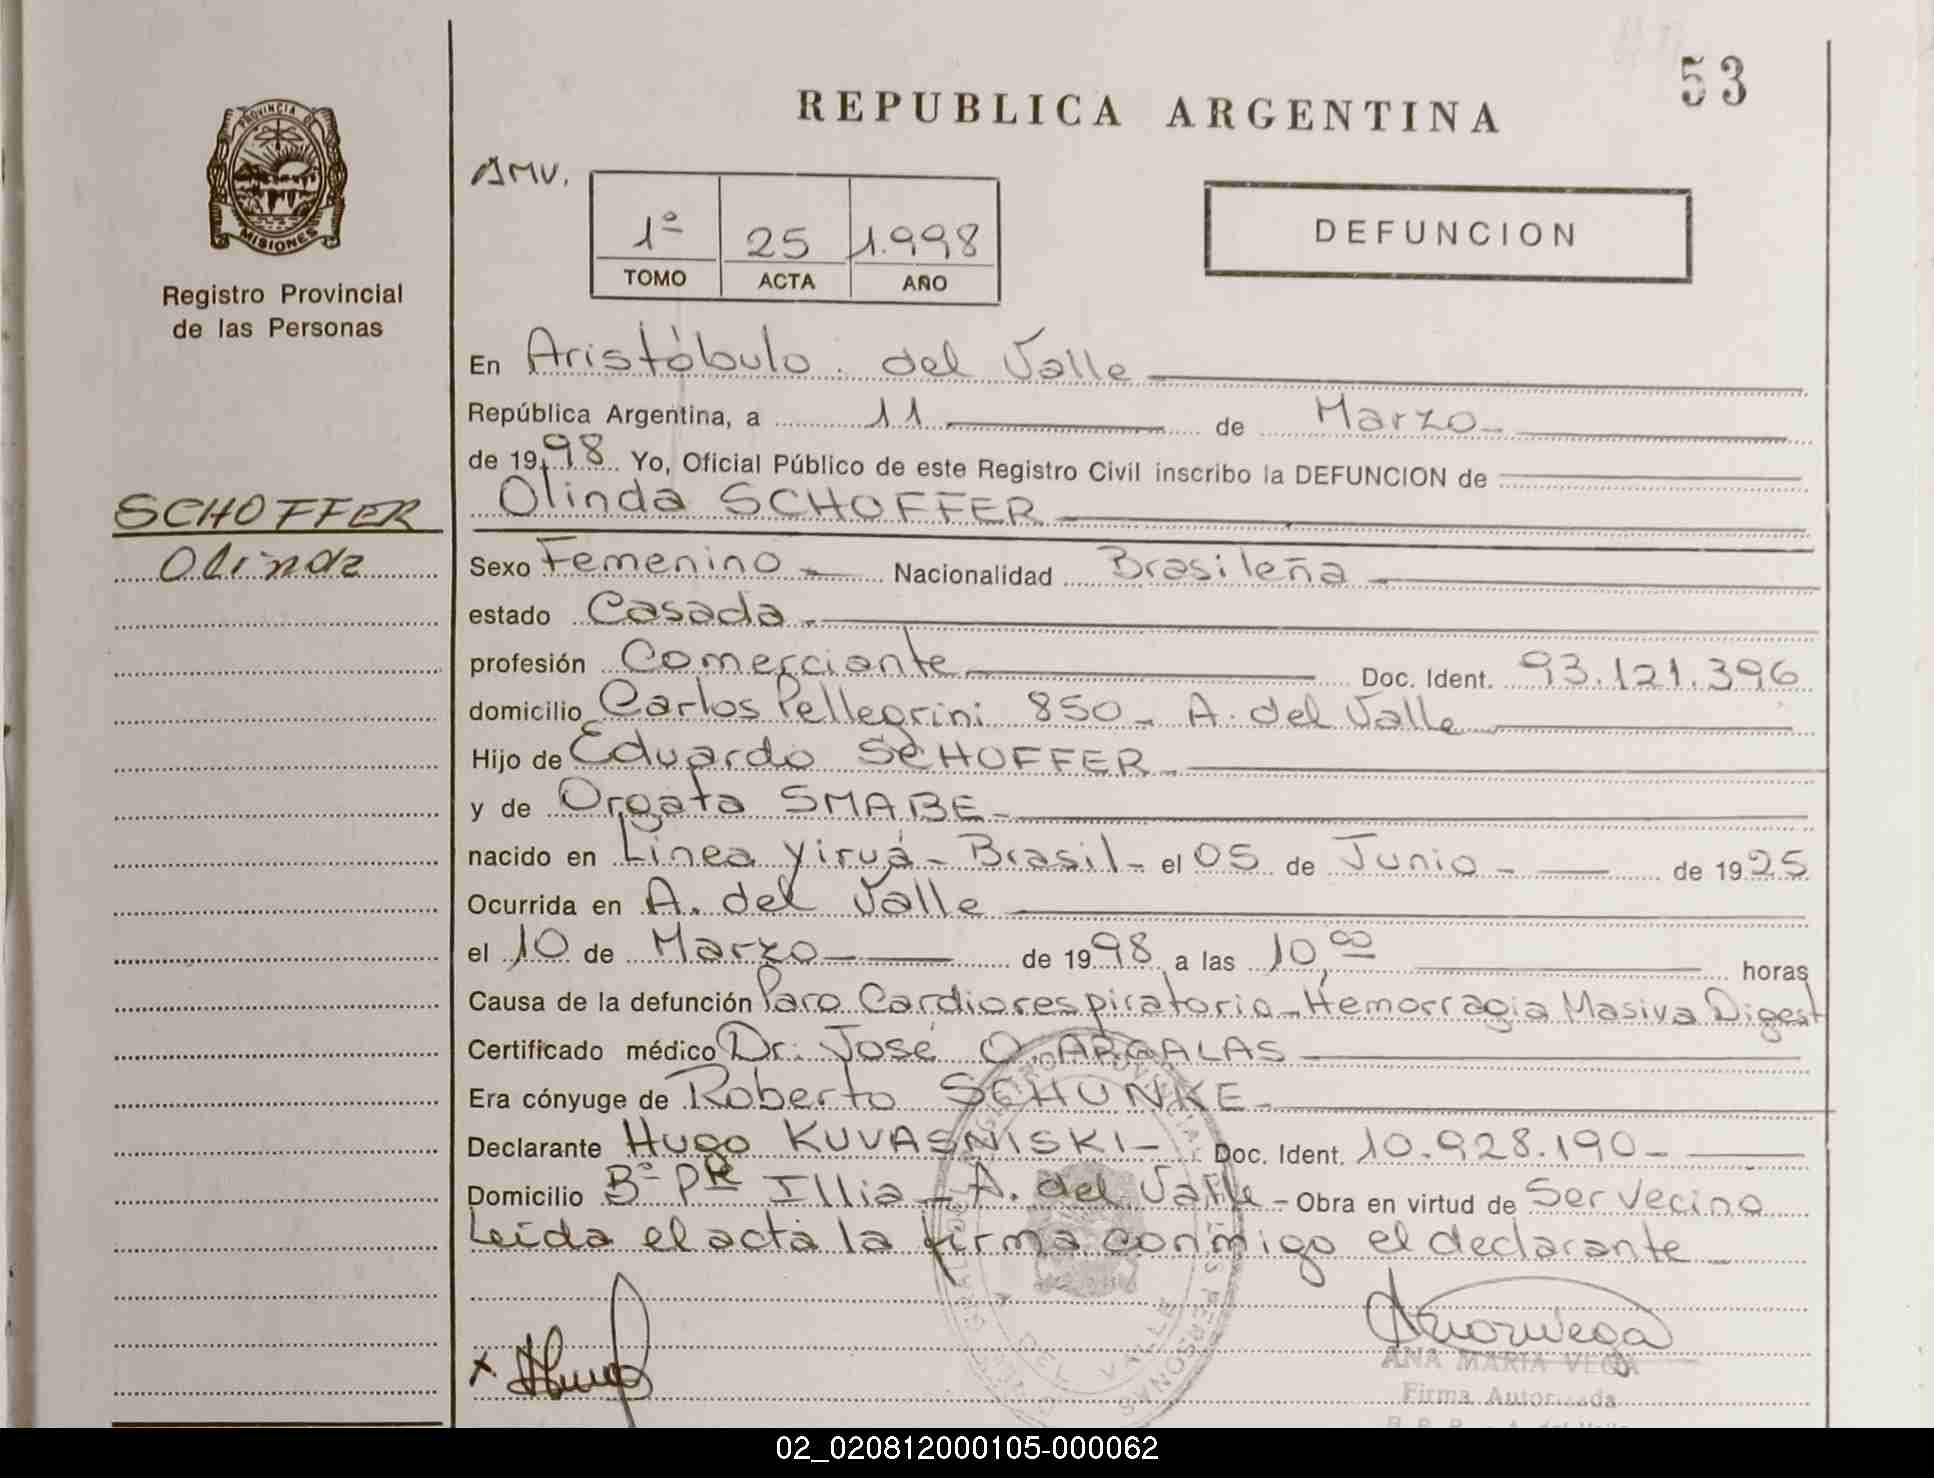 53
REPUBLICA ARGENTINA
PROVINCIA DE
MISIONES
Registro Provincial
de las Personas
AMV.
1º 25 1.998
TOMO ACTA AÑO
DEFUNCION
En Aristóbulo del Valle
República Argentina, a 11 de Marzo
de 1998 Yo, Oficial Público de este Registro Civil inscribo la DEFUNCION de
SCHOFFER
Olinda
Olinda SCHOFFER
Sexo Femenino Nacionalidad Brasileña
estado Casada
profesión Comerciante Doc. Ident. 93.121.396
domicilio Carlos Pellegrini 850 - A. del Valle
Hijo de Eduardo SCHOFFER
y de Orgata SMABE
nacido en Linea Yiruá - Brasil - el 05 de Junio de 1925
Ocurrida en A. del Valle
el 10 de Marzo de 1998 a las 10,00 horas
Causa de la defunción Paro Cardiorespiratorio - Hemorragia Masiva Digest
Certificado médico Dr. José O. ARGALAS
Era cónyuge de Roberto SCHUNKE
Declarante Hugo KUVASNISKI - Doc. Ident. 10.928.190
Domicilio Bº PR Illia - A. del Valle - Obra en virtud de Ser Vecino
Leída el acta la firma conmigo el declarante
ANA MARIA VEGA
Firma Autorizada
02_020812000105-000062